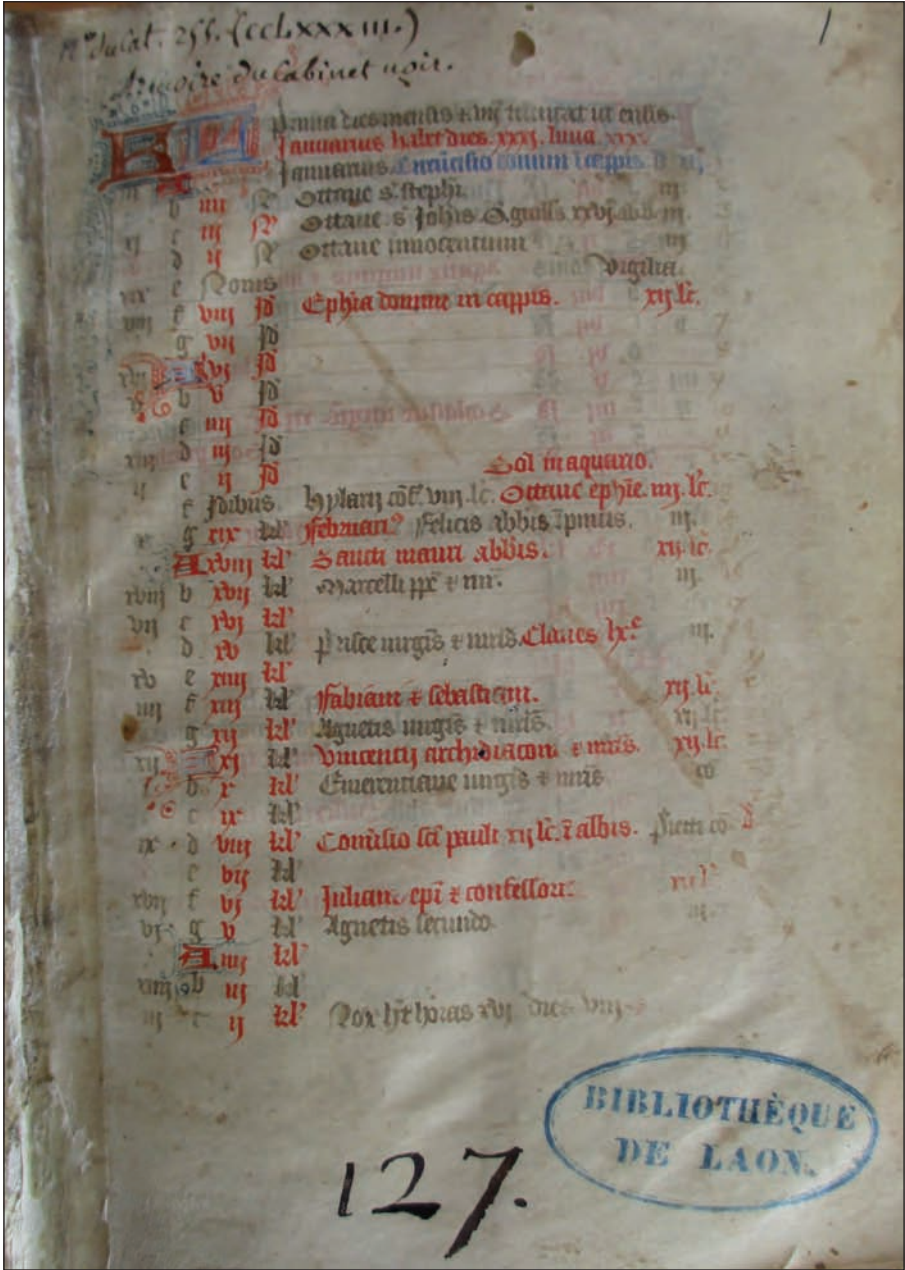 No du Cat. 255. (CCLXXXIII.)
1
Armoire du Cabinet noir.
Prima dies mensis & vij truncat ut ensis.
Januarius habet dies. xxxj. luna xxx.
KL Januarius. Circūcisio domini ī cappis.
b iiij N Octaue s. stephī. iij.
c iij N Octaue s. Johīs iij.
xj d ij N Octaue innocentium iij
xix e Nonis Vigilia.
viij f viij Id Ephīa domini in cappis. xij. lc̄.
g vij Id
xvj A vj Id
v b v Id
c iiij Id
xiij d iij Id
ij e ij Id Sol in aquario.
f Idibus. hylarij cōf. viij. lc̄. Octaue ephīe. iij. lc̄.
x g xix kl' februarii Felicis abbīs ī pincis. iij.
A xviij kl' Sancti mauri abbīs. xij. lc̄
xviij b xvij kl' Marcelli pp̄e & mr̄. iij.
vij c xvj kl'
d xv kl' Prisce uirgīs & mrīs. Claues lxx.e iij.
xv e xiiij kl'
iiij f xiij kl' Fabiani & sebastiani. xij. lc̄.
g xij kl' Agnetis uirgīs & mrīs. xij. lc̄.
xij A xj kl' Vincentij archidiaconi & mrīs. xij. lc̄.
b x kl' Emerentiane uirgīs & mrīs cō
c ix kl'
ix d viij kl' Conūsio scī pauli xij lc̄. ī albis.
e vij kl'
xvij f vj kl' Juliani epī & confessoris. xij. lc̄
vj g v kl' Agnetis secundo. iij.
A iiij kl'
xiiij b iij kl'
iij c ij kl' Nox hēt horas xvj dies viij
BIBLIOTHÈQUE
DE LAON.
127.